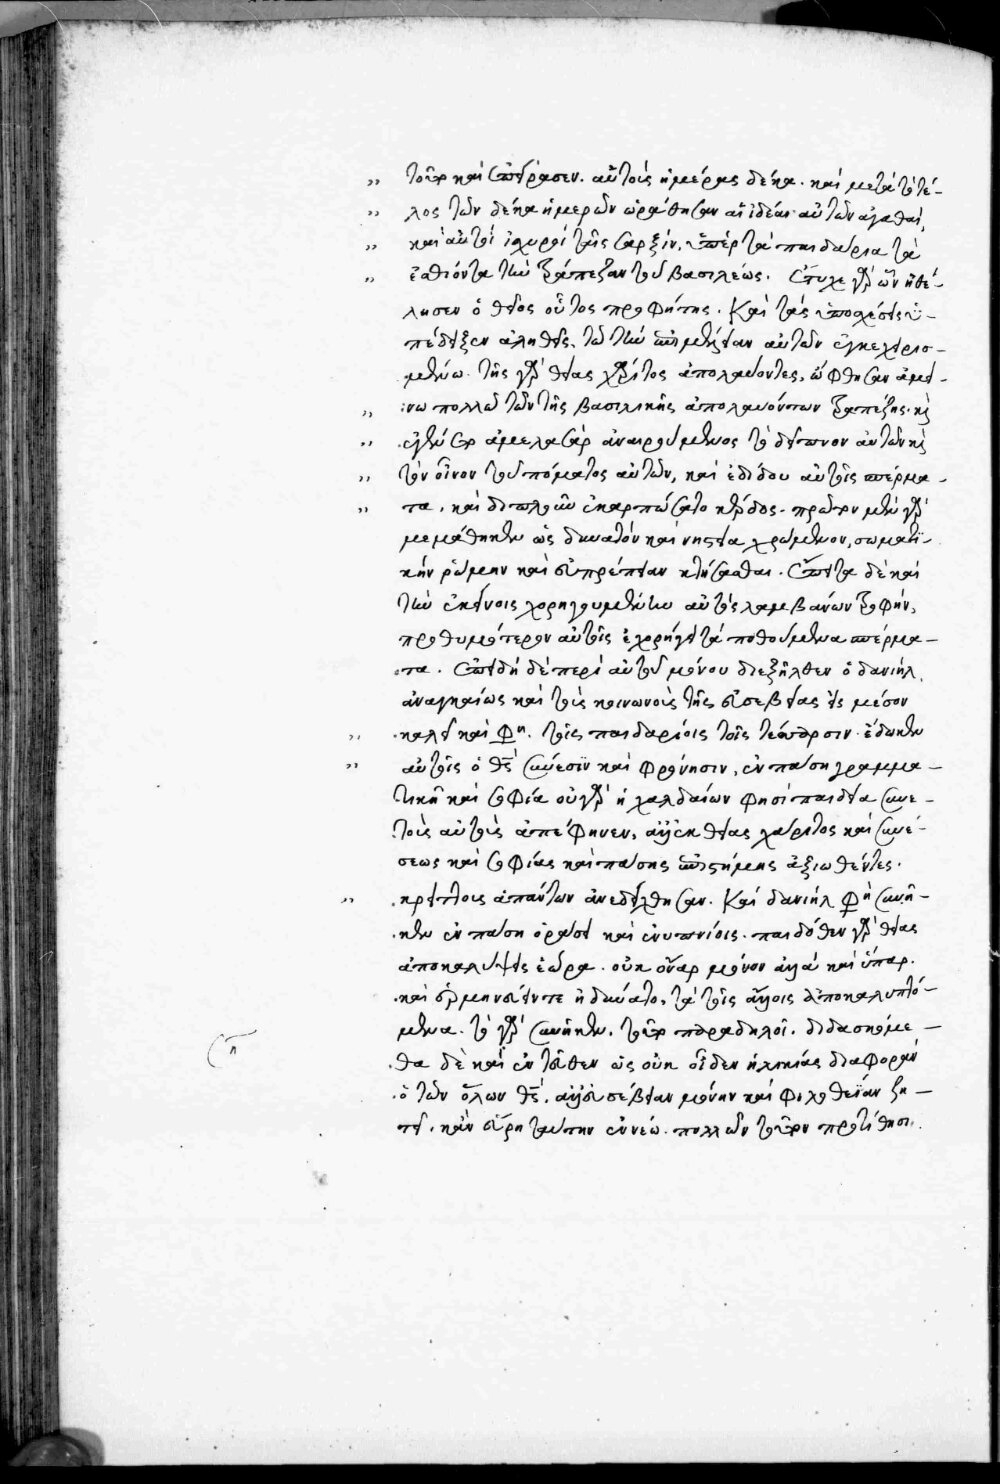 τοῦτο καὶ ἐπείρασεν αὐτοὺς ἡμέρας δέκα. καὶ μετὰ τὸ τέ-
λος τῶν δέκα ἡμερῶν ὡράθησαν αἱ ἰδέαι αὐτῶν ἀγαθαὶ,
καὶ αὐτοὶ ἰσχυροὶ ταῖς σαρξίν, ὑπὲρ τὰ παιδάρια τὰ
ἐσθίοντα τὴν τράπεζαν τοῦ βασιλέως. ἔτυχε γὰρ ὧν ἠθέ-
λησεν ὁ θεῖος οὗτος προφήτης. Καὶ τὰς ὑποσχέσεις ὑ-
πέδειξεν ἀληθεῖς, τῷ τὴν ἐπιμέλειαν αὐτῶν ἐγκεχειρισ-
μένω. τῆς γὰρ θείας χάριτος ἀπολαύοντες, ὤφθησαν ἀμεί-
νω πολλῷ τῶν τῆς βασιλικῆς ἀπολαυόντων τραπέζης. κὶ
ἐγένετο ἀμελασὰρ ἀναιρούμενος τὸ δεῖπνον αὐτῶν κὶ
τὸν οἶνον τοῦ πόματος αὐτῶν, καὶ ἐδίδου αὐτοῖς σπέρμα-
τα. καὶ διπλοῦν ἐκαρπώσατο κέρδος. πρῶτον μὲν γὰρ
μεμάθηκεν ὡς δυνατὸν καὶ νηστεία χρώμενον, σωματι-
κὴν ῥώμην καὶ εὐπρέπειαν κτήσασθαι. ἔπειτα δὲ καὶ
τὴν ἐκείνοις χορηγουμένην αὐτὸς λαμβάνων τροφὴν,
προθυμότερον αὐτοῖς ἐχορήγει τὰ ποθούμενα σπέρμα-
τα. ἐπειδὴ δὲ περὶ αὐτοῦ μόνου διεξῆλθεν ὁ δανιὴλ,
ἀναγκαίως καὶ τοὺς κοινωνοὺς τῆς εὐσεβείας εἰς μέσον
καλεῖ καὶ φη. τοῖς παιδαρίοις τοῖς τέσσαρσιν ἔδωκεν
αὐτοῖς ὁ θς σύνεσιν καὶ φρόνησιν, ἐν πάση γραμμα-
τικῆ καὶ σοφία οὐ γὰρ ἡ χαλδαίων φησὶ παιδεία συνε-
τοὺς αὐτοὺς ἀπέφηνεν, ἀλλ' ἐκ θείας χάριτος καὶ συνέ-
σεως καὶ σοφίας καὶ πάσης ἐπιστήμης ἀξιωθέντες.
κρείττους ἁπάντων ἀνεδείχθησαν. Καὶ δανιὴλ φη συνῆ-
κεν ἐν πάση ὁράσει καὶ ἐνυπνίοις. παιδόθεν γὰρ θείας
ἀποκαλύψεις ἑώρα. οὐκ ὄναρ μόνον ἀλλὰ καὶ ὕπαρ.
καὶ ἑρμηνεύειν τε ἠδύνατο, τὰ τοῖς ἄλλοις ἀποκαλυπτό-
μενα. τὸ γὰρ συνῆκεν, τοῦτο παραδηλοῖ. διδασκόμε-
θα δὲ καὶ ἐντεῦθεν ὡς οὐκ οἶδεν ἡλικίας διαφορὰν
ὁ τῶν ὅλων θς. ἀλλ' εὐσέβειαν μόνην καὶ φιλοθεΐαν ζη-
τεῖ. κἂν εὕρη ταύτην ἐν νέω. πολλῶν τοῦτον προτίθησι.